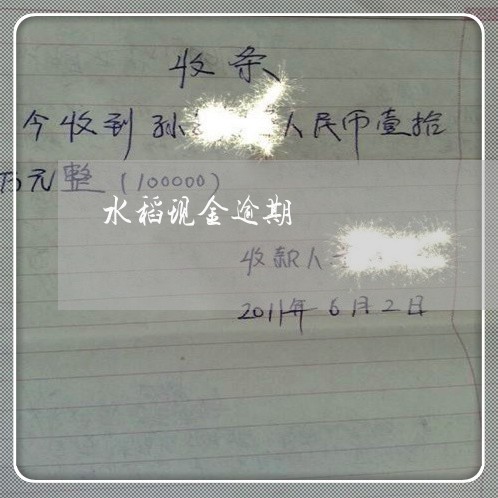 收条
今收到孙 人民币壹拾
万元整（100000）
水稻现金逾期
收款人
2011年6月2日